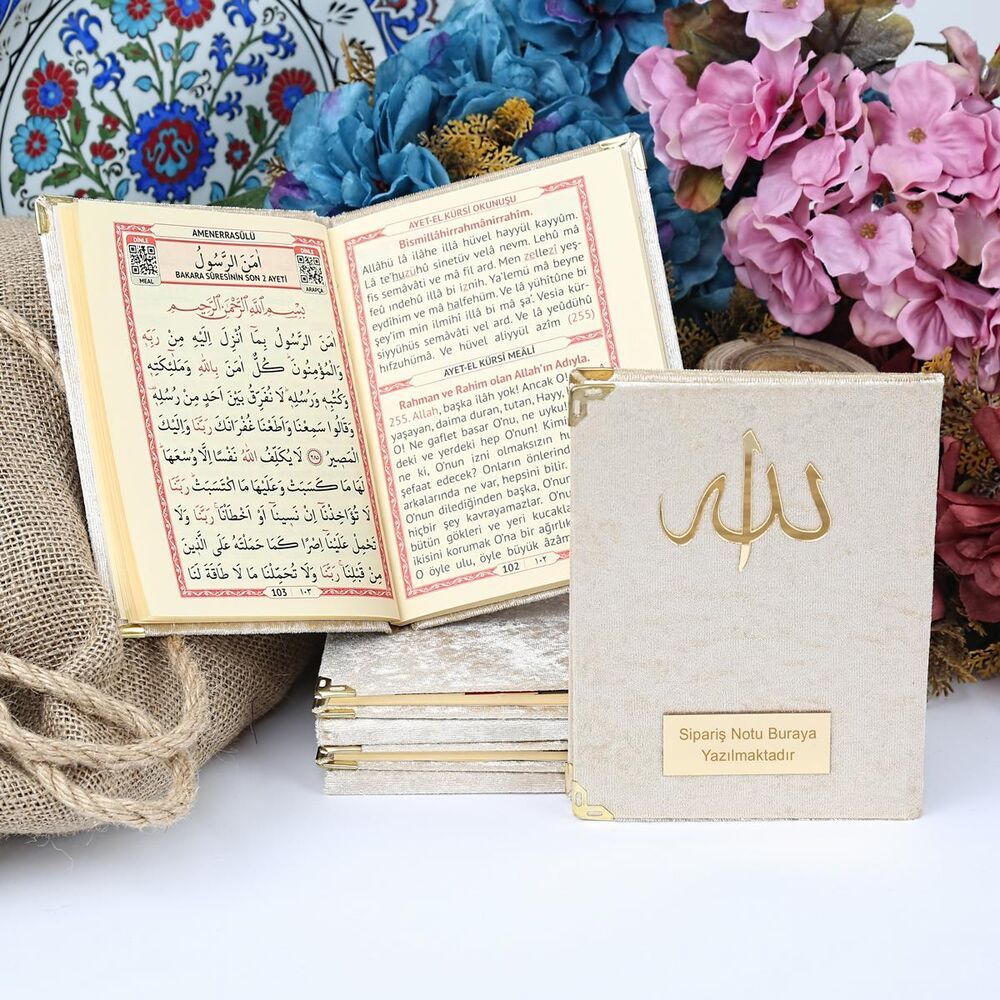 AMENERRASÛLÜ
DİNLE
MEAL
اٰمَنَ الرَّسُولُ
BAKARA SÛRESİNİN SON 2 AYETİ
DİNLE
ARAPÇA
بِسْمِ اللّٰهِ الرَّحْمٰنِ الرَّحِيمِ
اٰمَنَ الرَّسُولُ بِمَٓا اُنْزِلَ اِلَيْهِ مِنْ رَبِّه۪
وَالْمُؤْمِنُونَۜ كُلٌّ اٰمَنَ بِاللّٰهِ وَمَلٰٓئِكَتِه۪
وَكُتُبِه۪ وَرُسُلِه۪ۜ لَا نُفَرِّقُ بَيْنَ اَحَدٍ مِنْ رُسُلِه۪
وَقَالُوا سَمِعْنَا وَاَطَعْنَا غُفْرَانَكَ رَبَّنَا وَاِلَيْكَ
الْمَصِيرُ ﴿٢٨٥﴾ لَا يُكَلِّفُ اللّٰهُ نَفْسًا اِلَّا وُسْعَهَاۜ
لَهَا مَا كَسَبَتْ وَعَلَيْهَا مَا اكْتَسَبَتْۜ رَبَّنَا
لَا تُؤَاخِذْنَٓا اِنْ نَسِينَٓا اَوْ اَخْطَأْنَاۚ رَبَّنَا وَلَا
تَحْمِلْ عَلَيْنَٓا اِصْرًا كَمَا حَمَلْتَهُ عَلَى الَّذِينَ
مِنْ قَبْلِنَاۚ رَبَّنَا وَلَا تُحَمِّلْنَا مَا لَا طَاقَةَ لَنَا
103 ١٠٣
AYET-EL KÜRSİ OKUNUŞU
Bismillâhirrahmânirrahim.
Allâhü lâ ilâhe illâ hüvel hayyül kayyûm.
Lâ te'huzuhû sinetüv velâ nevm. Lehû mâ
fis semâvâti ve mâ fil ard. Men zellezî yeş-
feû ındehû illâ bi iznih. Ya'lemü mâ beyne
eydîhim ve mâ halfehüm. Ve lâ yühîtûne bi
şey'im min ilmihî illâ bi mâ şa'. Vesia kür-
siyyühüs semâvâti vel ard. Ve lâ yeûdühû
hıfzuhümâ. Ve hüvel aliyyül azîm (255)
AYET-EL KÜRSİ MEALİ
Rahman ve Rahim olan Allah'ın Adıyla.
255. Allah, başka ilâh yok! Ancak O'
yaşayan, daima duran, tutan, Hayy,
O! Ne gaflet basar O'nu, ne uyku!
deki ve yerdeki hep O'nun! Kimin
ne ki, O'nun izni olmaksızın hu
şefaat edecek? Onların önlerind
arkalarında ne var, hepsini bilir.
O'nun dilediğinden başka, O'nun
hiçbir şey kavrayamazlar. O'nun
bütün gökleri ve yeri kucakla
ikisini korumak O'na bir ağırlık
O öyle ulu, öyle büyük âzâm
102 ١٠٢
الله
Sipariş Notu Buraya
Yazılmaktadır